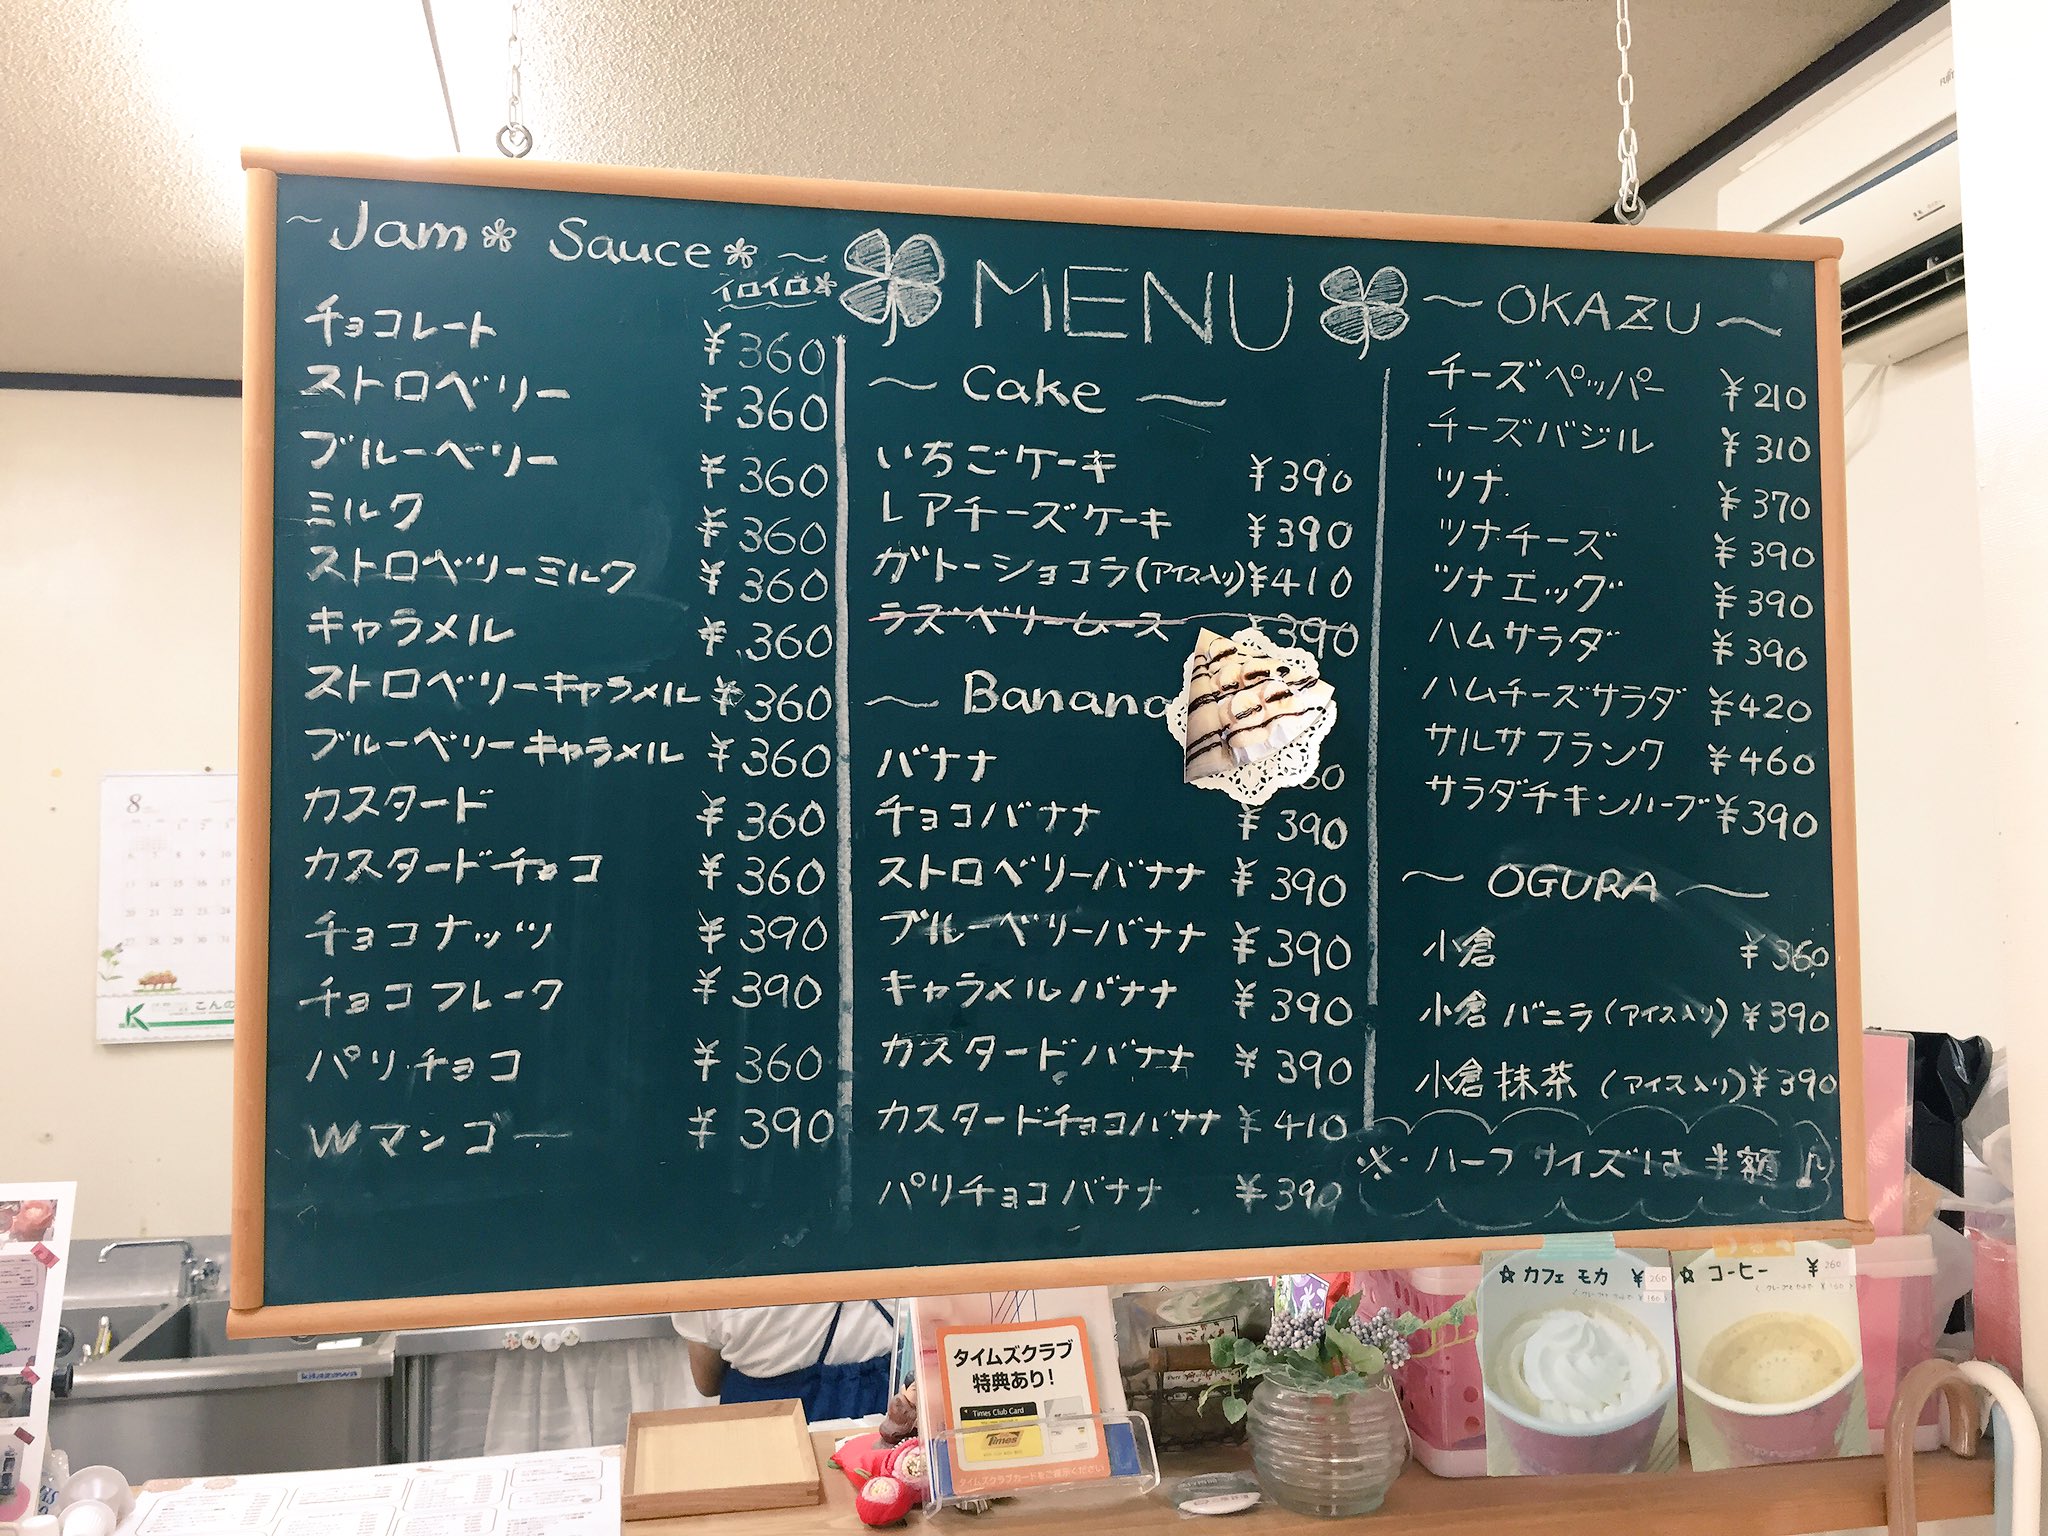 ~Jam* Sauce*~
イロイロ*
チョコレート ¥360
ストロベリー ¥360
ブルーベリー ¥360
ミルク ¥360
ストロベリーミルク ¥360
キャラメル ¥360
ストロベリーキャラメル ¥360
ブルーベリーキャラメル ¥360
カスタード ¥360
カスタードチョコ ¥360
チョコナッツ ¥390
チョコフレーク ¥390
パリチョコ ¥360
Wマンゴー ¥390
MENU
~ Cake ~
いちごケーキ ¥390
レアチーズケーキ ¥390
ガトーショコラ(アイス入り) ¥410
ラズベリームース ¥390
~ Banana
バナナ 60
チョコバナナ ¥390
ストロベリーバナナ ¥390
ブルーベリーバナナ ¥390
キャラメルバナナ ¥390
カスタードバナナ ¥390
カスタードチョコバナナ ¥410
パリチョコバナナ ¥390
~OKAZU~
チーズペッパー ¥210
チーズバジル ¥310
ツナ ¥370
ツナチーズ ¥390
ツナエッグ ¥390
ハムサラダ ¥390
ハムチーズサラダ ¥420
サルサフランク ¥460
サラダチキンハーブ ¥390
~ OGURA ~
小倉 ¥360
小倉バニラ(アイス入り) ¥390
小倉抹茶(アイス入り) ¥390
※・ハーフサイズは半額♪
8
こんの
☆カフェモカ ¥260
☆コーヒー ¥260
タイムズクラブ
特典あり!
Times Club Card
Times
タイムズクラブカードをご提示ください
Menu